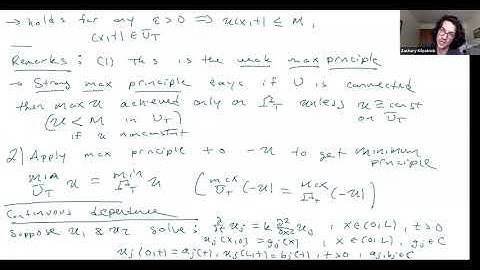 → holds for any ε>0 ⟹ u(x,t) ≤ M,
(x,t) ∈ U̅_T
Zachary Kilpatrick
Remarks: (1) This is the weak max principle
→ Strong max principle says if U is connected
then max u achieved only on Γ_T unless u ≡ const
(u < M in U_T) on U̅_T
if u nonconstant
2) Apply max principle to -u to get minimum
principle
min U̅_T u = min Γ_T u (max U̅_T (-u) = max Γ_T (-u))
Continuous dependence
Suppose u₁ & u₂ solve: ∂/∂t u_j = k ∂²/∂x² u_j , x ∈ (0,L), t>0
u_j(x,0) = g_j(x) , x ∈ (0,L), g_j ∈ C
u_j(0,t) = a_j(t), u_j(L,t) = b_j(t), t>0, a_j, b_j ∈ C